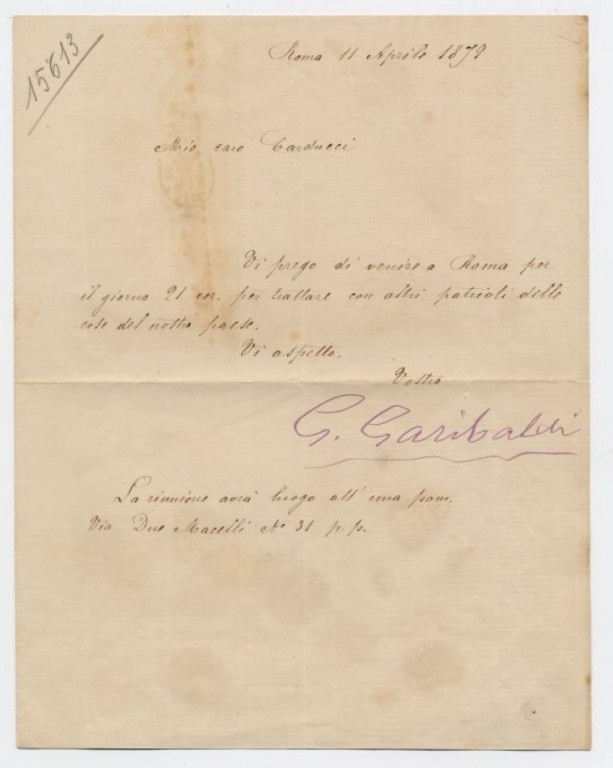 15613
Roma 11 Aprile 1879
Mio caro Carducci
Vi prego di venire a Roma per
il giorno 21 cor. per trattare con altri patrioti delle
cose del nostro paese.
Vi aspetto.
Vostro
G. Garibaldi
La riunione avrà luogo all' una pom.
Via Due Macelli No 31 p. p.